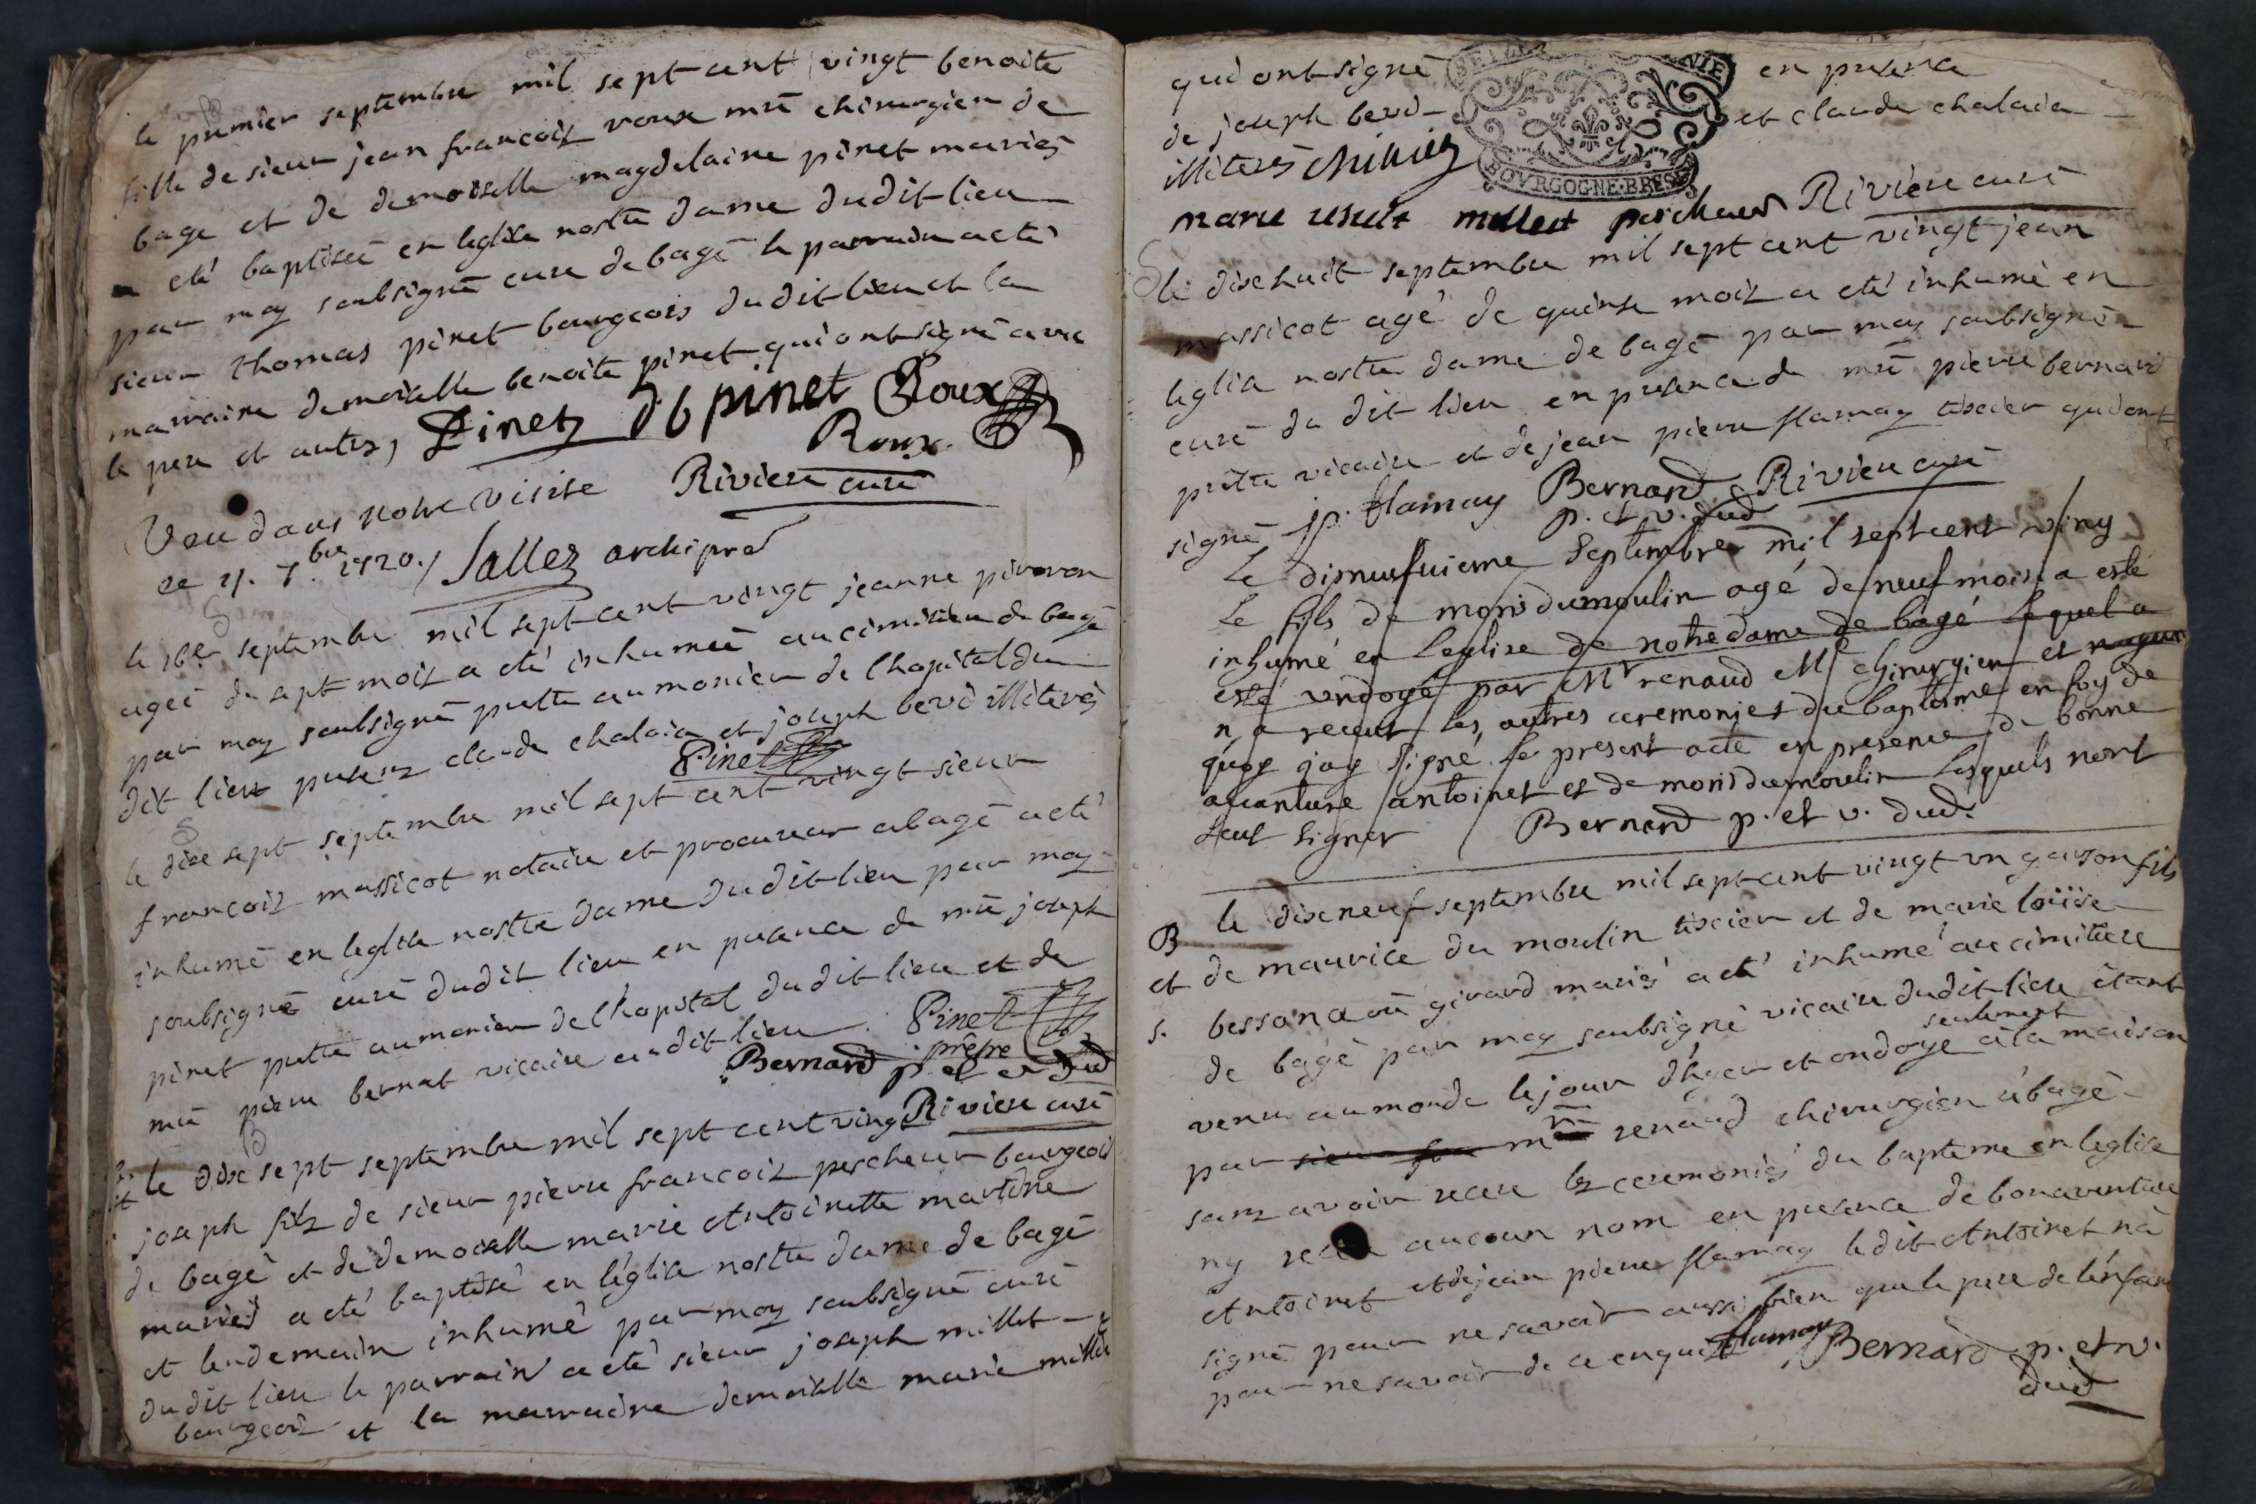 le premier septembre mil sept cent vingt benoite
fille de sieur jean francois roux mre chirurgien de
bage et de demoiselle magdelaine pinet mariés
a eté baptiseé en leglise nostre dame dudit lieu
par moy soubsigné curé de bagé le parrain a eté
sieur thomas pinet bourgeois dudit lieu et la
marraine demoiselle benoite pinet qui ont signé avec
le pere et autres, Pinet pinet Roux
Roux
Riviere curé
Veu dans notre visite
ce 7.bre 1720. Sallez archipre
le 16e septembre mil sept cent vingt jeanne
ageé de sept mois a eté inhumeé au cimitiere de bagé
par moy soubsigné prestre aumonier de lhopital du
dit lieu presens claude chalain et joseph illiterés
Pinet
le dixe sept septembre mil sept cent vingt sieur
francois massicot notaire et procureur a bagé a eté
inhumé en leglise nostre dame dudit lieu par moy
soubsigné curé dudit lieu en presence de mre joseph
pinet prestre aumonier de l'hopital dudit lieu et de
mre pierre bernat vicaire audit lieu Pinet
prestre
Bernard p. et v dud
Riviere curé
le dixe sept septembre mil sept cent vingt
joseph filz de sieur pierre francois percheur bourgeois
de bagé et de demoiselle marie Antoinette martine
mariés a eté baptisé en léglise nostre dame de bagé
et lendemain inhumé par moy soubsigné curé
dudit lieu le parrain a eté sieur joseph millet
bourgeois et la marraine demoiselle marie millet
qui ont signé en presence
de joseph et claude chalain
illiterés
BOURGOGNE·BRESSE
marie millet percheur Riviere curé
le dixe huit septembre mil sept cent vingt jean
massicot agé de quinse mois a eté inhumé en
leglise nostre dame de bagé par moy soubsigné
curé du dit lieu en presence de mre pierre bernard
prestre vicaire et de jean pierre flamay tixcier qui ont
signé jp. flamay Bernard Riviere curé
p. et v. dud
Le disneufuieme Septembre mil sept cent ving
Le fils de moris dumoulin agé de neuf mois a esté
inhumé en Leglise de notre dame de bagé Lequel a
esté undoyé par Mr renaud Me chirurgien et
n a receut les autres ceremonies du baptesme en foy de
quoy jay signé le present acte en presence de bonne
auanture antoinet et de moris dumoulin Lesquels nont
seut signer Bernard p. et v. dud.
B le dixe neuf septembre mil sept cent vingt un garson fils
et de maurice du moulin tixcier et de marie loüise
s. bessona ou girard mariés a eté inhumé au cimitiere
de bagé par moy soubsigné vicaire dudit lieu étant
venu au monde le jour d'hyer et ondoyé seulement à la maison
par mre renaud chirurgien à bagé
sans avoir receu les ceremonies du bapteme en leglise
ny receu aucun nom en presence de bonaventure
Antoinet et de jean pierre flamay ledit Antoinet nà
signé pour ne savoir aussi bien que le pere de lénfant
pour ne savoir de ce enquis flamay Bernard p. et v.
dud